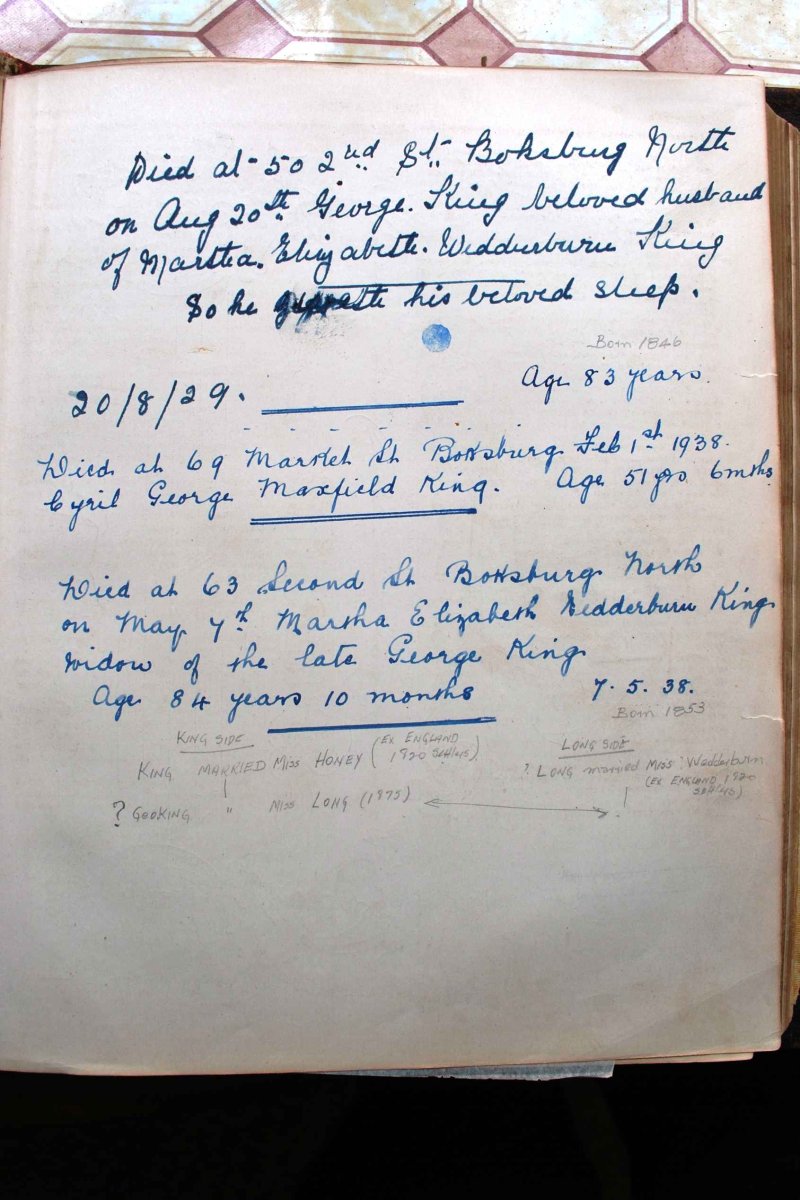 Died at 50 2nd St Boksburg North
on Aug 20th George. King beloved husband
of Martha. Elizabeth. Wedderburn King
So he giveth his beloved sleep.
Born 1846
Age 83 years.
20/8/29.
Died at 69 Market St Boksburg Feb 1st 1938.
Cyril George Maxfield King. Age 51 yrs 6 mths
Died at 63 Second St Boksburg North
on May 7th Martha Elizabeth Wedderburn King
widow of the late George King
Age 84 years 10 months 7.5.38.
Born 1853
KING SIDE
KING MARRIED MISS HONEY (EX ENGLAND
1820 Settlers)
LONG SIDE
? LONG married MISS Wedderburn
(EX ENGLAND 1820
Settlers)
? GEO KING " MISS LONG (1875)